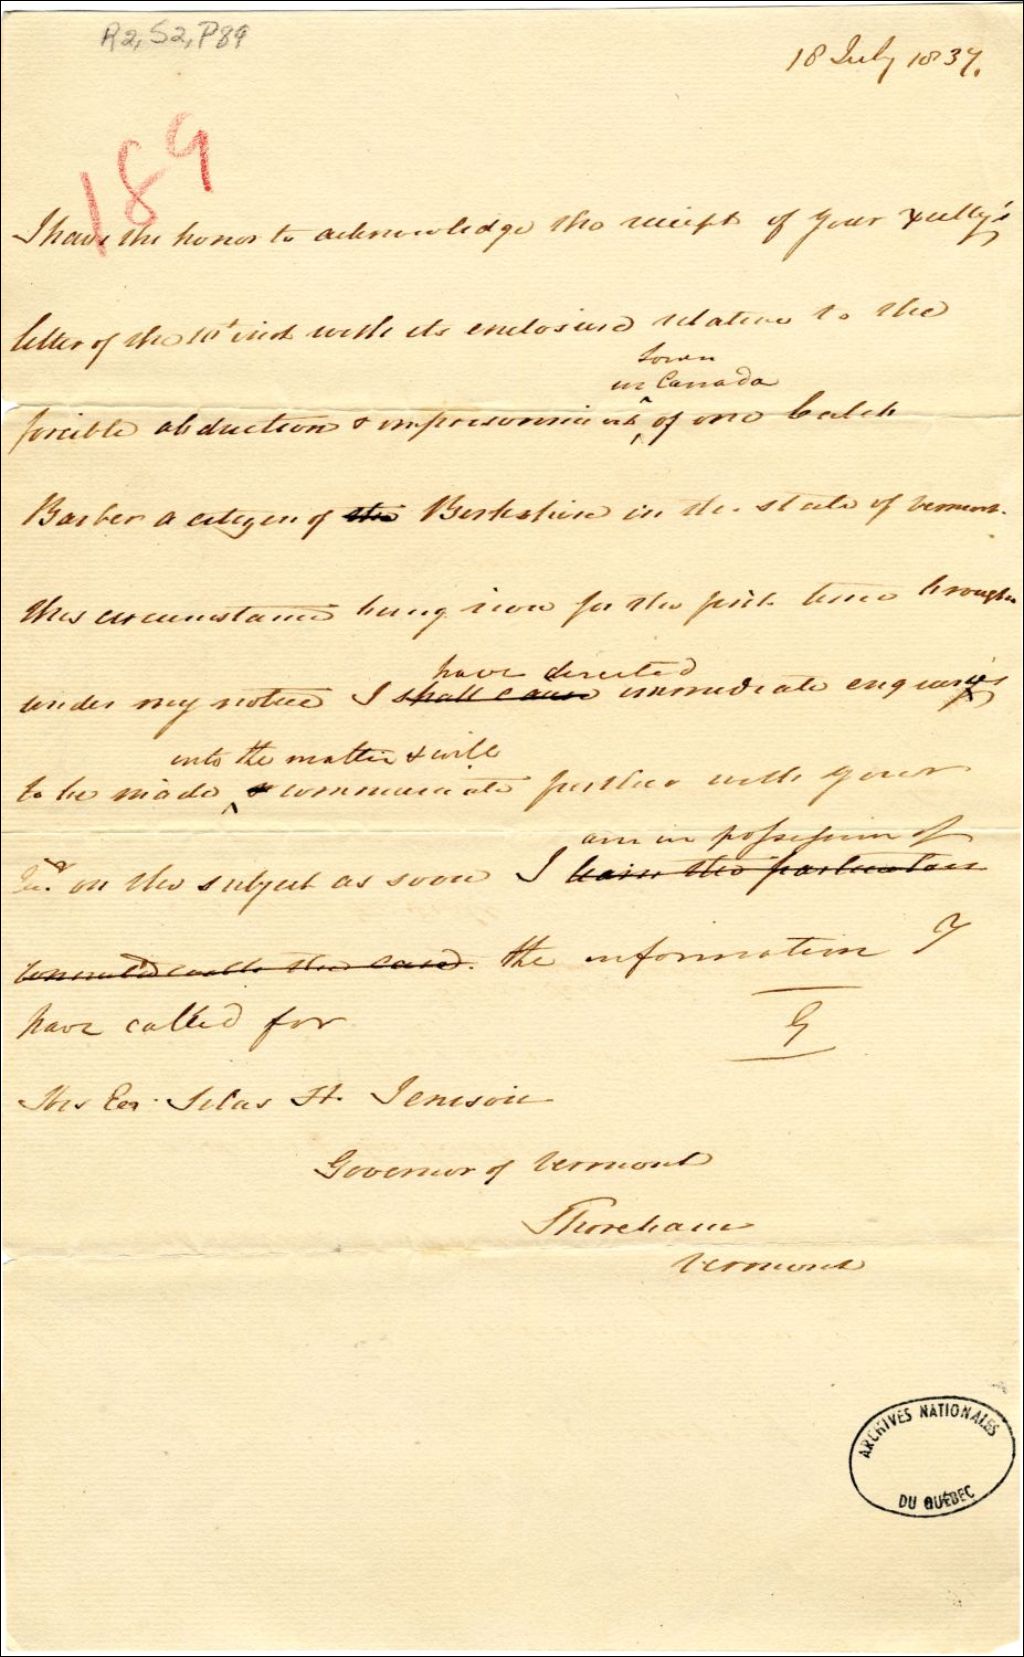 R2, S2, P89
18 July 1837.
189
I have the honor to acknowledge the receipt of your Xcelly's
letter of the 10t inst with its enclosure relative to the
in Canada
forcible abduction & imprisonment of one Caleb
Barber a citizen of the Berkshire in the state of Vermont.
this circumstance being now for the first time brought
have directed
under my notice I shall cause immediate enquiries
into the matter & will
to be made & communicate further with your
am in possession of
on the subject as soon I learn the particulars
connected with the case. the information I
have called for
G
His Ex. Silas H. Jenison
Governor of Vermont
Shoreham
Vermont
ARCHIVES NATIONALES
DU QUÉBEC